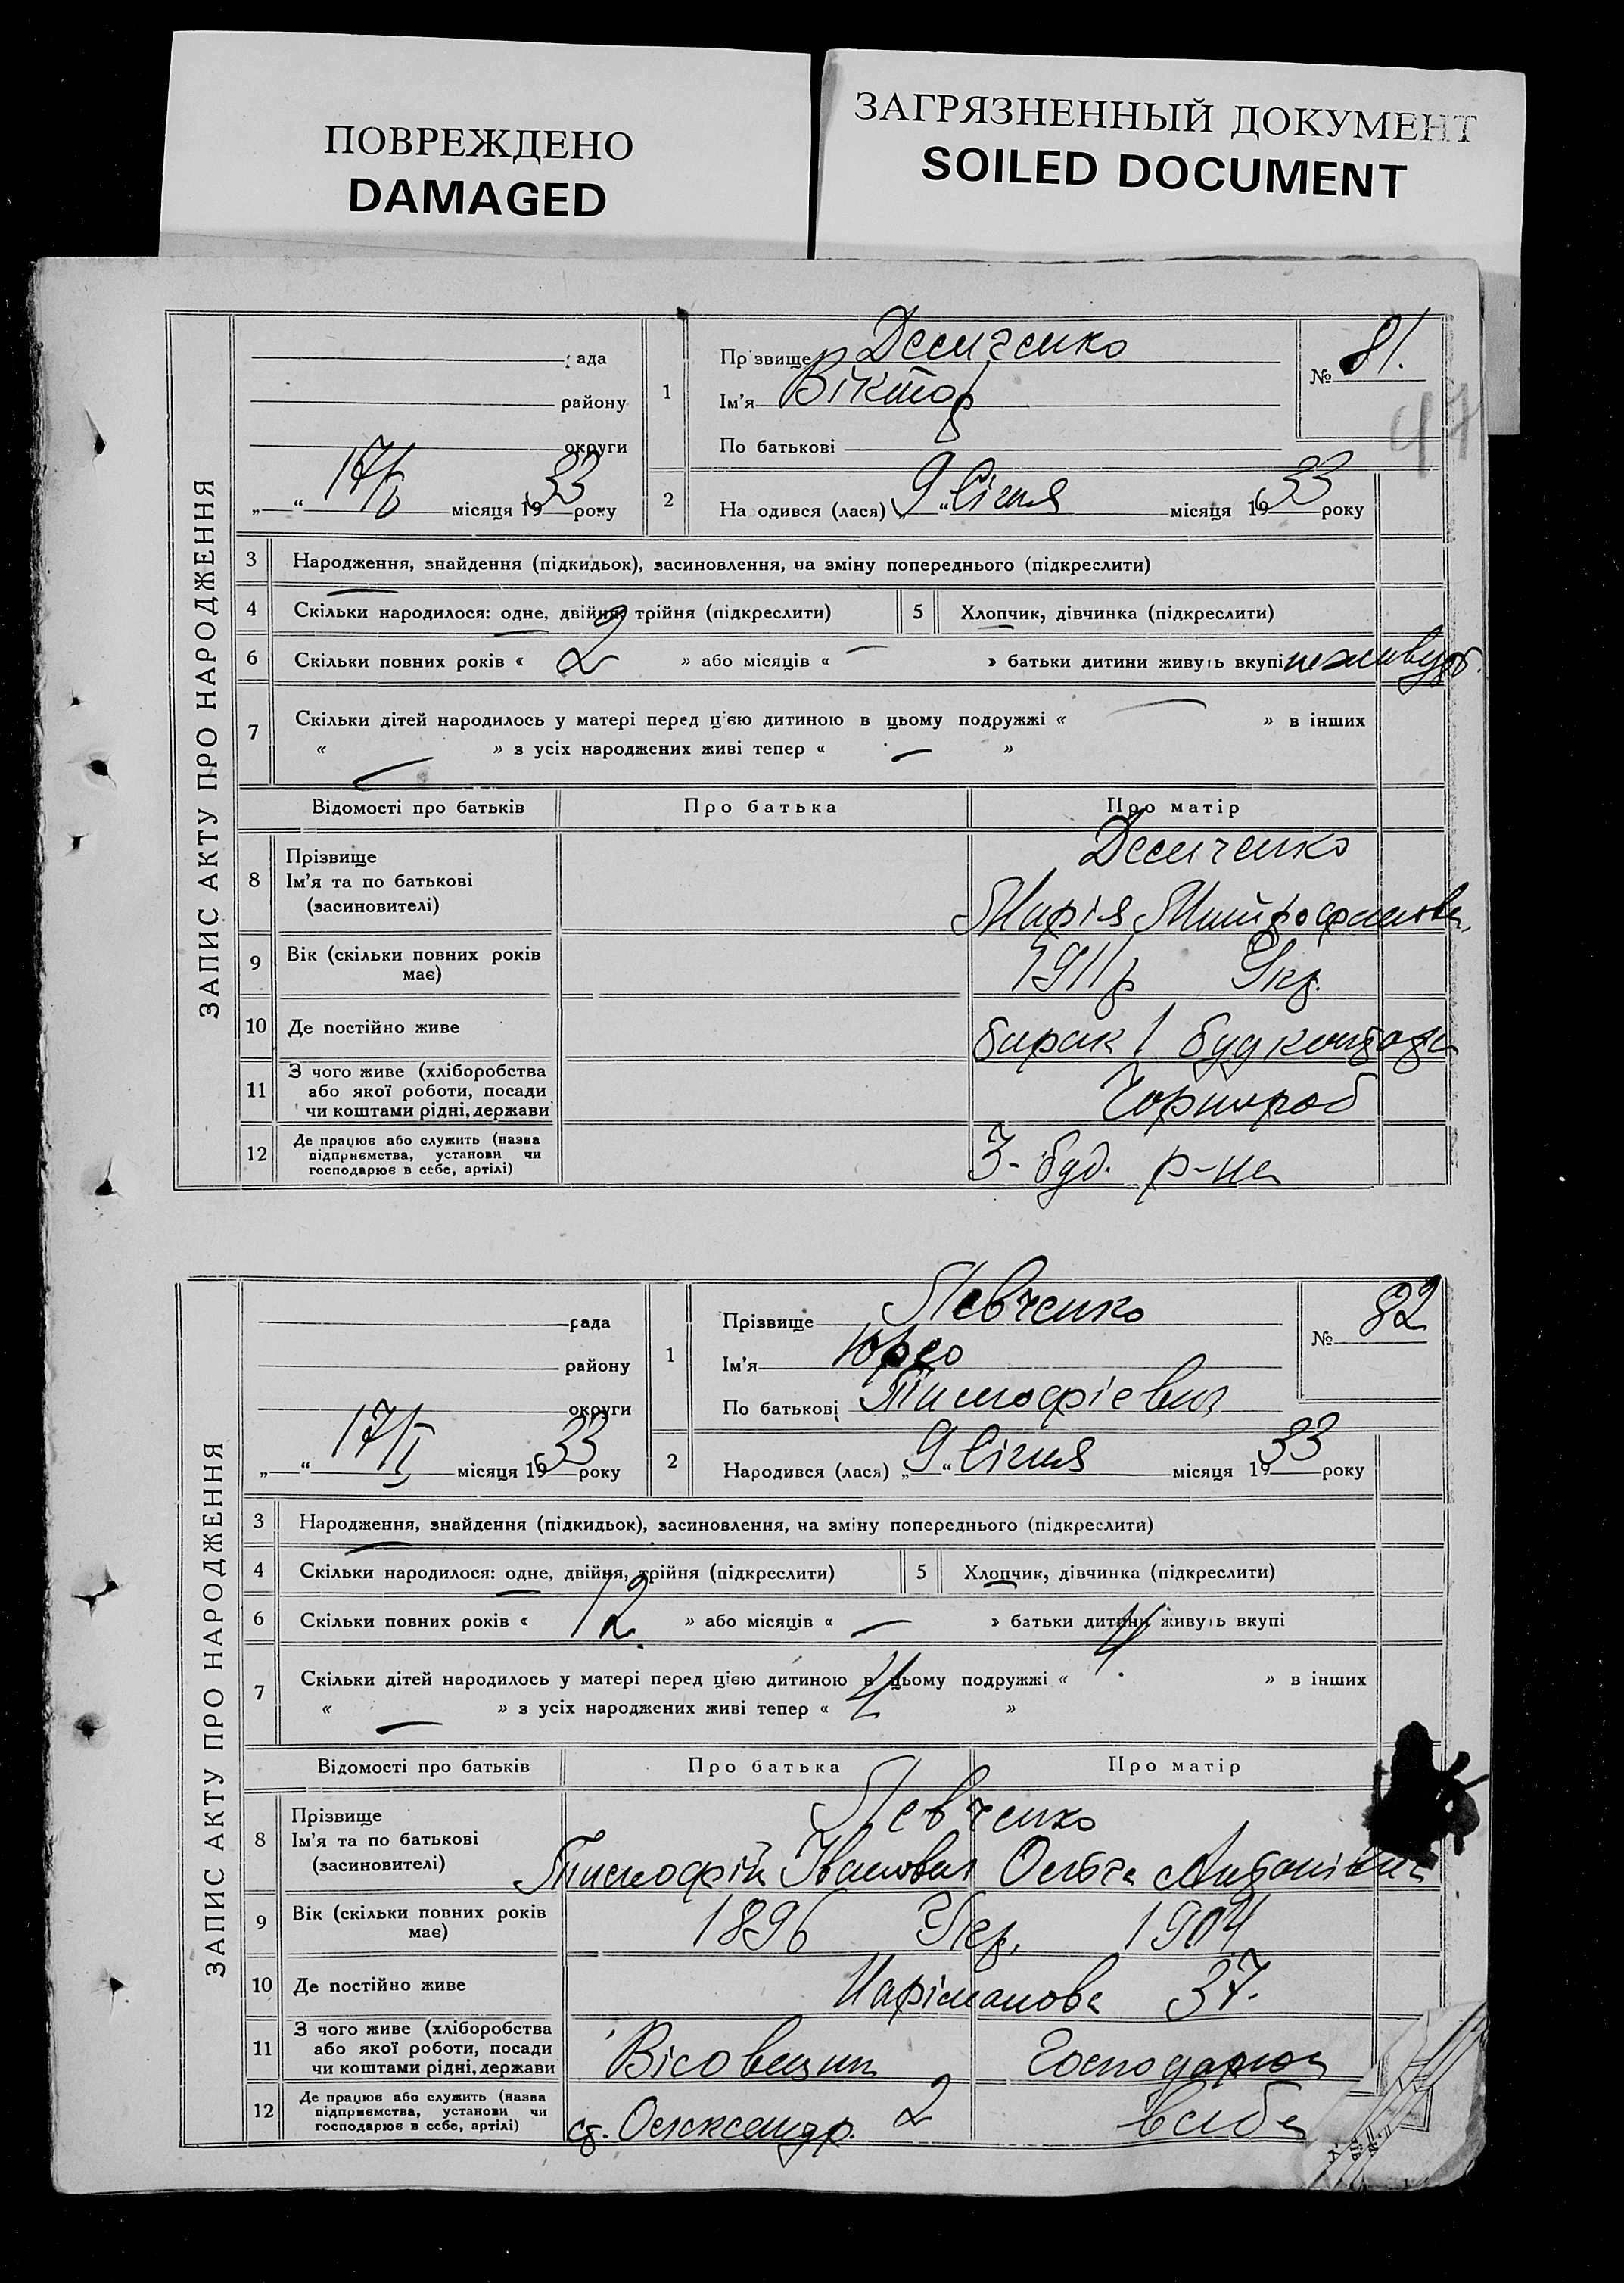 ПОВРЕЖДЕНО
DAMAGED
ЗАГРЯЗНЕННЫЙ ДОКУМЕНТ
SOILED DOCUMENT
ЗАПИС АКТУ ПРО НАРОДЖЕННЯ
рада
району
округи
„ “ 17/I місяця 1933 року
1 Прізвище Демченко
Ім'я Віктор
По батькові
№ 81.
47
2 Народився (лася) „9“ Січня місяця 1933 року
3 Народження, знайдення (підкидьок), засиновлення, на зміну попереднього (підкреслити)
4 Скільки народилося: одне, двійня, трійня (підкреслити) 5 Хлопчик, дівчинка (підкреслити)
6 Скільки повних років « 2 » або місяців « — » батьки дитини живуть вкупі не живуть.
7 Скільки дітей народилось у матері перед цією дитиною в цьому подружжі « — » в інших
« — » з усіх народжених живі тепер « — »
Відомості про батьків Про батька Про матір
8 Прізвище Демченко
Ім'я та по батькові
(засновителі) Марія Митрофанова
9 Вік (скільки повних років має) 1911 р Укр.
10 Де постійно живе барак 1 будконтора
11 З чого живе (хліборобства
або якої роботи, посади Чорнороб
чи коштами рідні, держави
12 Де працює або служить (назва
підприємства, установи чи 3-буд. р-на
господарює в себе, артілі)
ЗАПИС АКТУ ПРО НАРОДЖЕННЯ
рада
району
округи
„ “ 17/I місяця 1933 року
1 Прізвище Левченко
Ім'я
По батькові Тимофієвич
№ 82
2 Народився (лася) „9“ Січня місяця 1933 року
3 Народження, знайдення (підкидьок), засиновлення, на зміну попереднього (підкреслити)
4 Скільки народилося: одне, двійня, трійня (підкреслити) 5 Хлопчик, дівчинка (підкреслити)
6 Скільки повних років « 12. » або місяців « — » батьки дитини живуть вкупі
7 Скільки дітей народилось у матері перед цією дитиною в цьому подружжі « 4. » в інших
« — » з усіх народжених живі тепер « 4 »
Відомості про батьків Про батька Про матір
8 Прізвище Левченко
Ім'я та по батькові
(засиновителі) Тимофій Іванович Ольга Антонівна
9 Вік (скільки повних років має) 1896 Укр. 1904
10 Де постійно живе Нарімanова 37.
11 З чого живе (хліборобства
або якої роботи, посади Вісовщик Господарює
чи коштами рідні, держави
12 Де працює або служить (назва
підприємства, установи чи
господарює в себе, артілі) ст. Олександр. 2 в себе